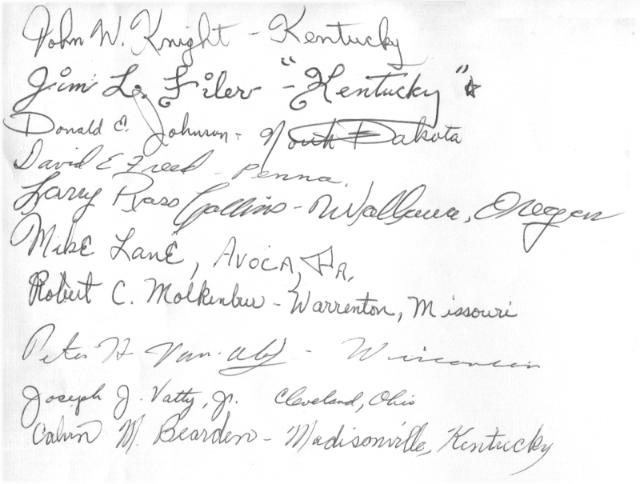 John W. Knight - Kentucky
Jim L. Filer - "Kentucky"
Donald E. Johnson - North Dakota
David E Freed - Penna.
Larry Ross Collins - Wallowa, Oregon
Mike Lane, Avoca, Pa.
Robert C. Molkenbur - Warrenton, Missouri
Peter H Van - Wisconsin
Joseph J. Vatty, Jr. Cleveland, Ohio
Calvin M. Bearden - Madisonville, Kentucky